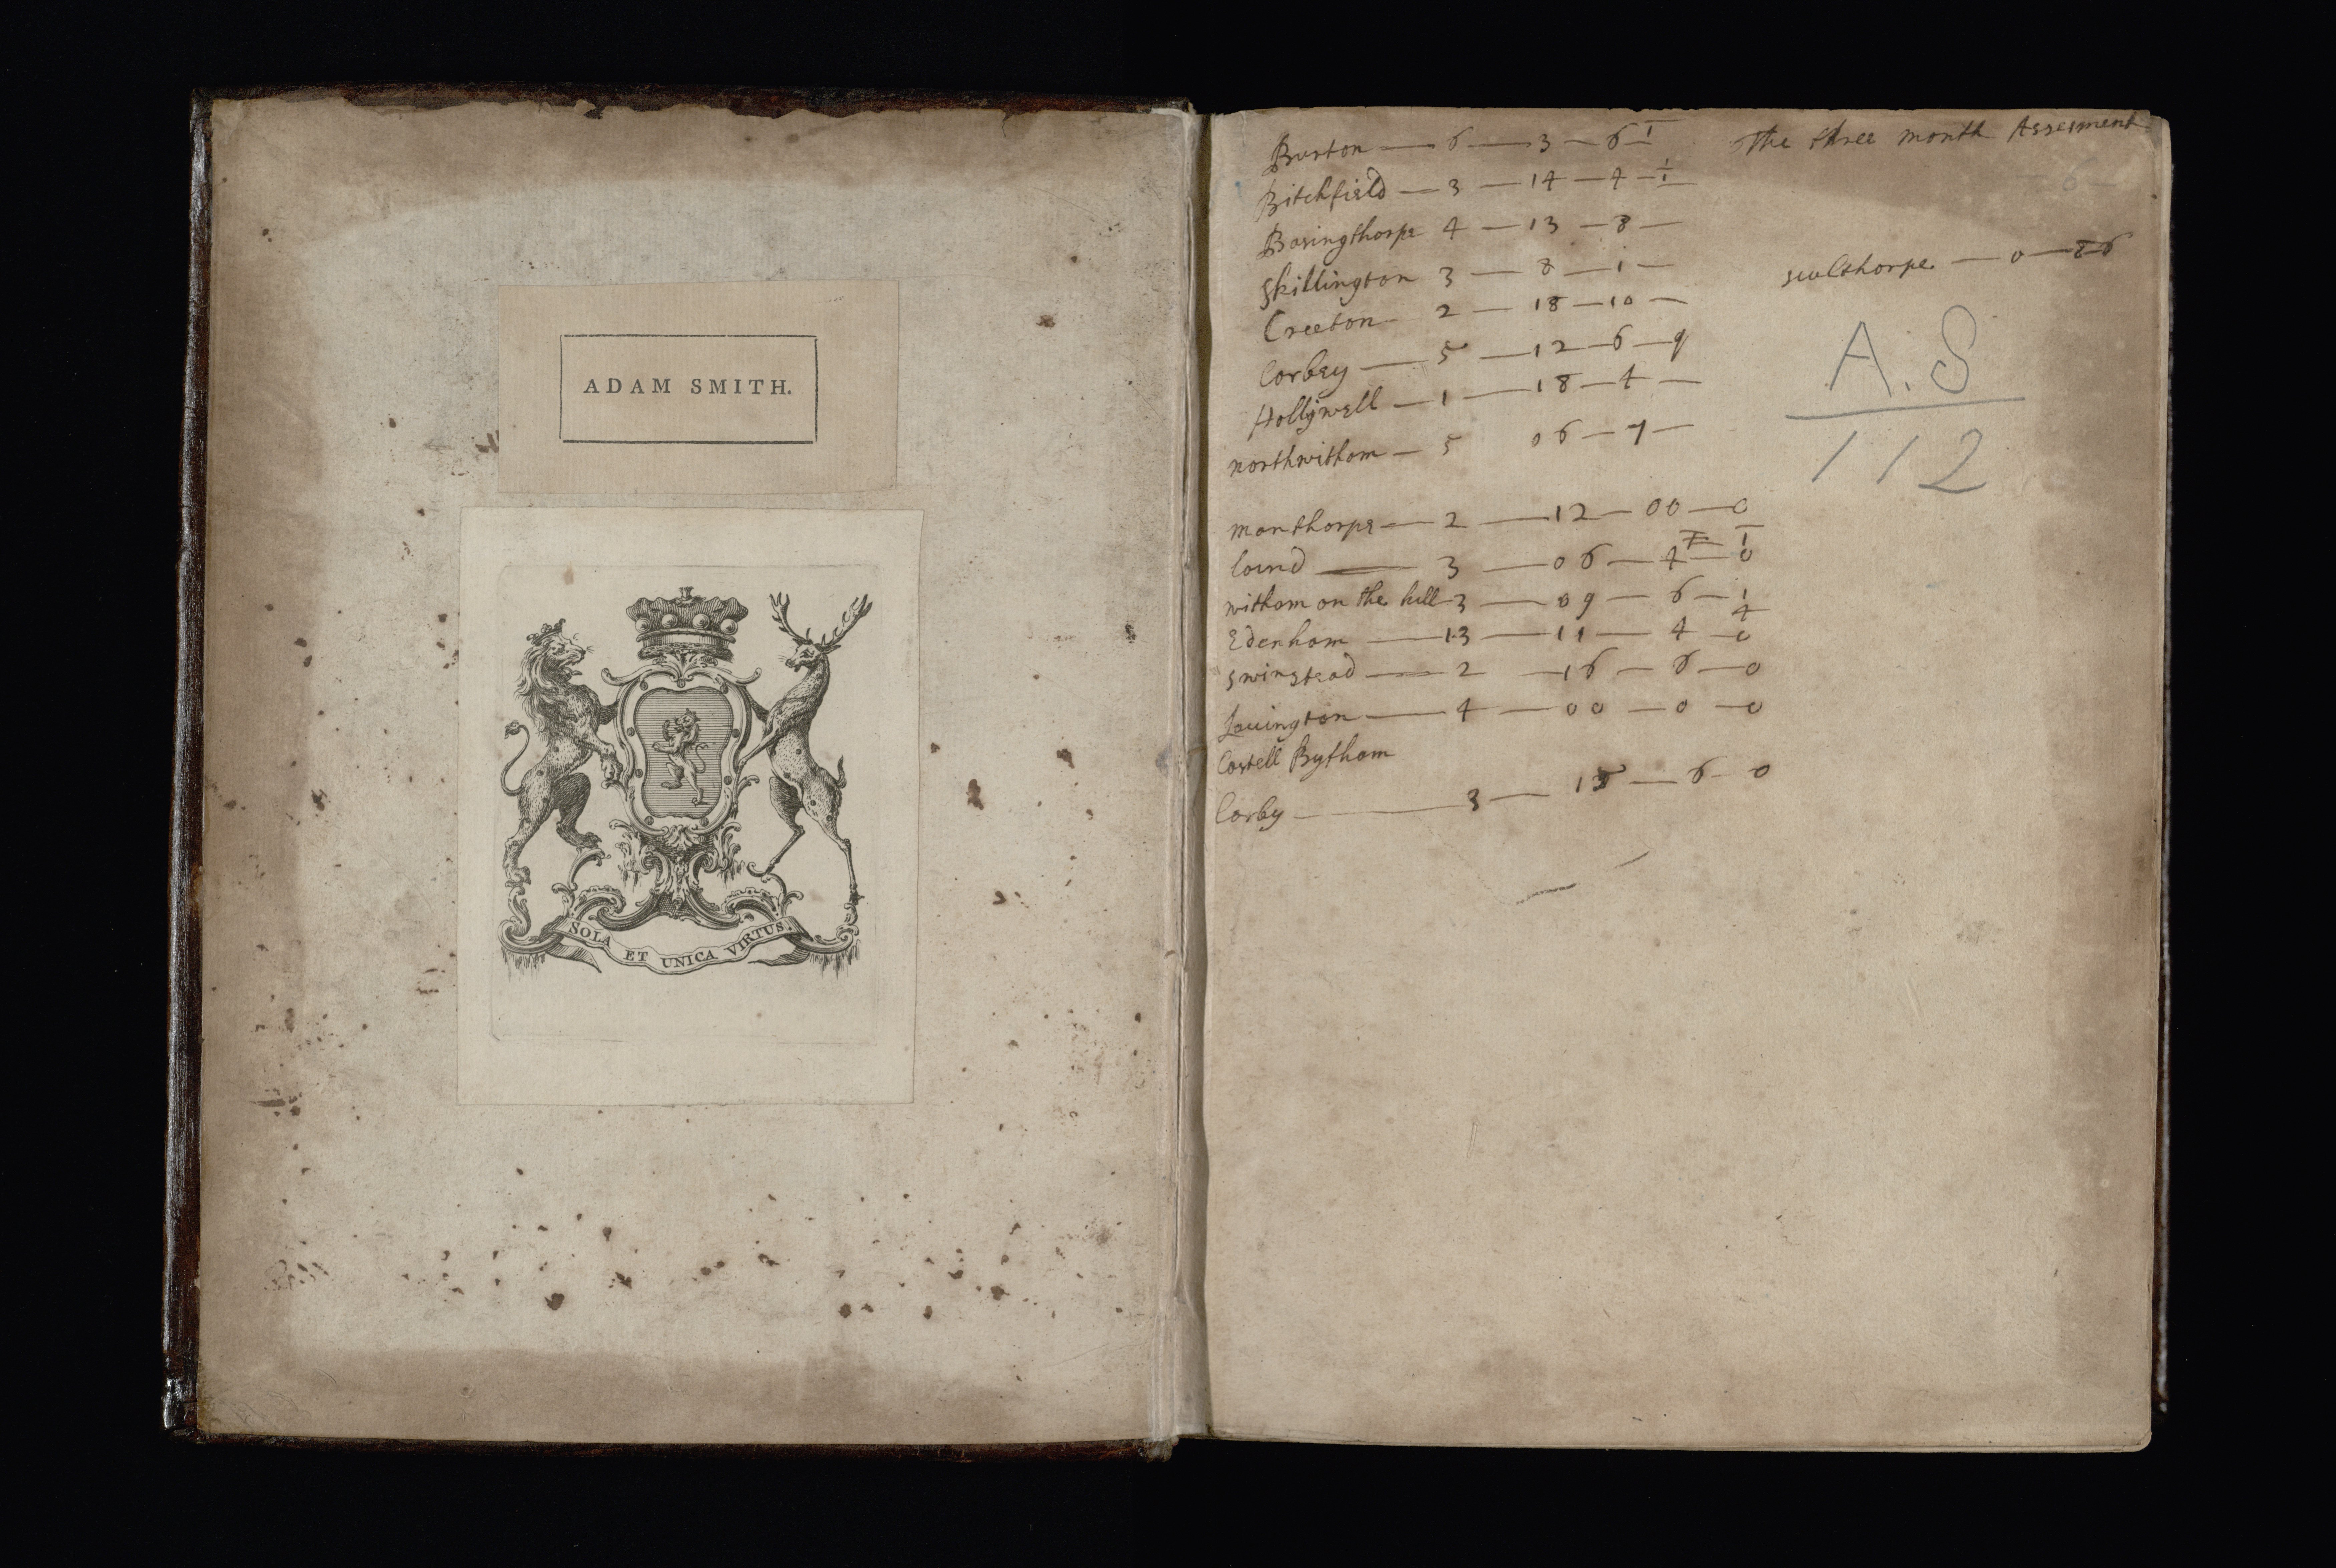 ADAM SMITH.
SOLA ET UNICA VIRTUS.
The three month Assesment
Burton — 6 — 3 — 6
Bitchfield — 3 — 14 — 4 —
Basingthorpe 4 — 13 — 8 —
Skillington 3 — 8 — 1 —
Creeton 2 — 18 — 10 —
Corbey — 5 — 12 — 6 — 9
Hollywell — 1 — 18 — 4 —
northwitham — 5 06 — 7 —
manthorpe — 2 — 12 — 00 — 0
lound — 3 — 06 — 4 — 0
witham on the hill 3 — 09 — 6 —
Edenham — 13 — 11 — 4 — 0
swinstead — 2 — 16 — 6 — 0
Lavington — 4 — 00 — 0 — 0
Castell Bytham
Corby — 3 — — 6 — 0
sculthorpe — 0 —
A.S
112